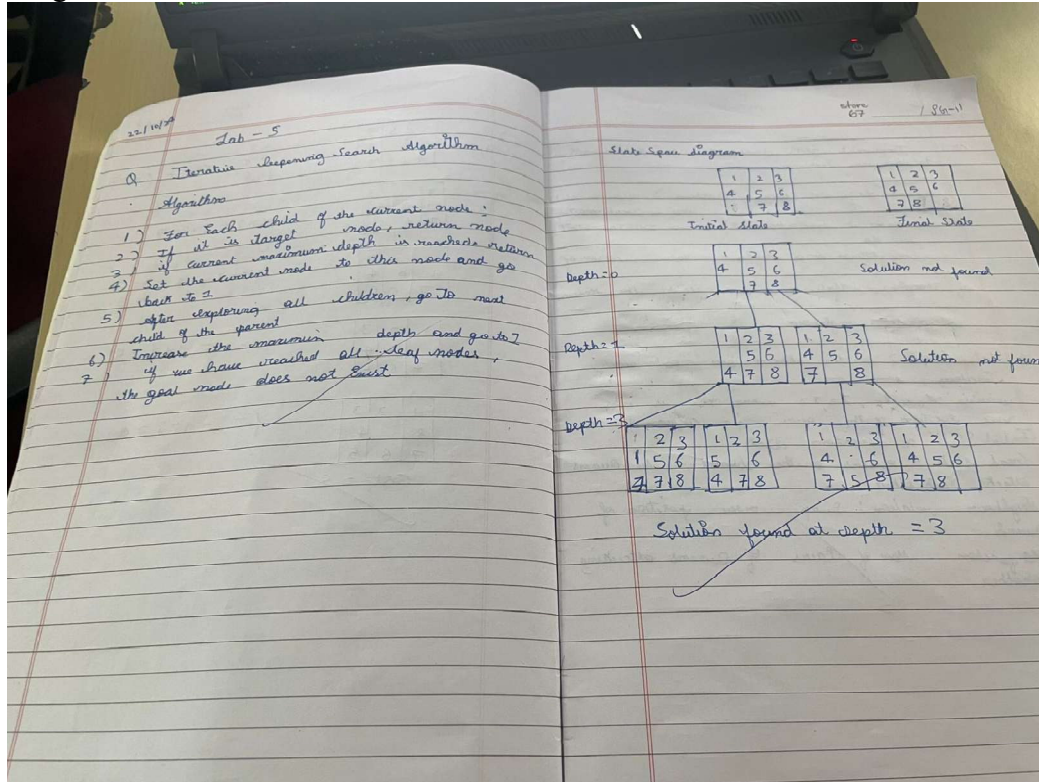 22/10/24
Lab - 5
Q Iterative Deepening Search Algorithm
Algorithm
1) For Each child of the current node:
2) If it is target node, return node
3) if current maximum depth is reached return
4) Set the current node to this node and go
back to 1
5) after exploring all children, go to next
child of the parent
6) Increase the maximum depth and go to 1
7) if we have reached all leaf nodes,
the goal node does not Exist
State Space diagram
1 2 3
4 5 6
7 8
Initial State
1 2 3
4 5 6
7 8
Final State
Depth = 0
1 2 3
4 5 6
7 8
Solution not found
Depth = 1
1 2 3
5 6
4 7 8
1 2 3
4 5 6
7 8
Solution not foun
Depth = 3
2 3
1 5 6
4 7 8
1 2 3
5 6
4 7 8
1 2 3
4 6
7 5 8
1 2 3
4 5 6
7 8
Solution found at depth = 3